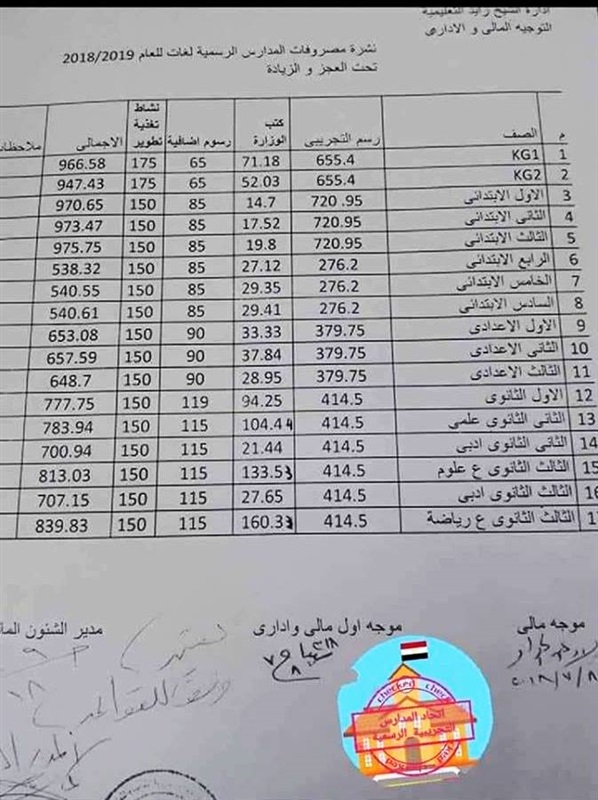 ادارة الشيخ زايد التعليمية
التوجيه المالى و الادارى
نشرة مصروفات المدارس الرسمية لغات للعام 2018/2019
تحت العجز و الزيادة
م الصف رسم التجريبى كتب الوزارة رسوم اضافية نشاط تغذية تطوير الاجمالى ملاحظات
1 KG1 655.4 71.18 65 175 966.58
2 KG2 655.4 52.03 65 175 947.43
3 الاول الابتدائى 720 .95 14.7 85 150 970.65
4 الثانى الابتدائى 720.95 17.52 85 150 973.47
5 الثالث الابتدائى 720.95 19.8 85 150 975.75
6 الرابع الابتدائى 276.2 27.12 85 150 538.32
7 الخامس الابتدائى 276.2 29.35 85 150 540.55
8 السادس الابتدائى 276.2 29.41 85 150 540.61
9 الاول الاعدادى 379.75 33.33 90 150 653.08
10 الثانى الاعدادى 379.75 37.84 90 150 657.59
11 الثالث الاعدادى 379.75 28.95 90 150 648.7
12 الاول الثانوى 414.5 94.25 119 150 777.75
13 الثانى الثانوى علمى 414.5 104.44 115 150 783.94
14 الثانى الثانوى ادبى 414.5 21.44 115 150 700.94
15 الثالث الثانوى ع علوم 414.5 133.53 115 150 813.03
16 الثالث الثانوى ادبى 414.5 27.65 115 150 707.15
17 الثالث الثانوى ع رياضة 414.5 160.33 115 150 839.83
موجه مالى موجه اول مالى وادارى مدير الشئون
٢٠١٨/٧/٨
checked
اتحاد المدارس
التجريبية الرسمية